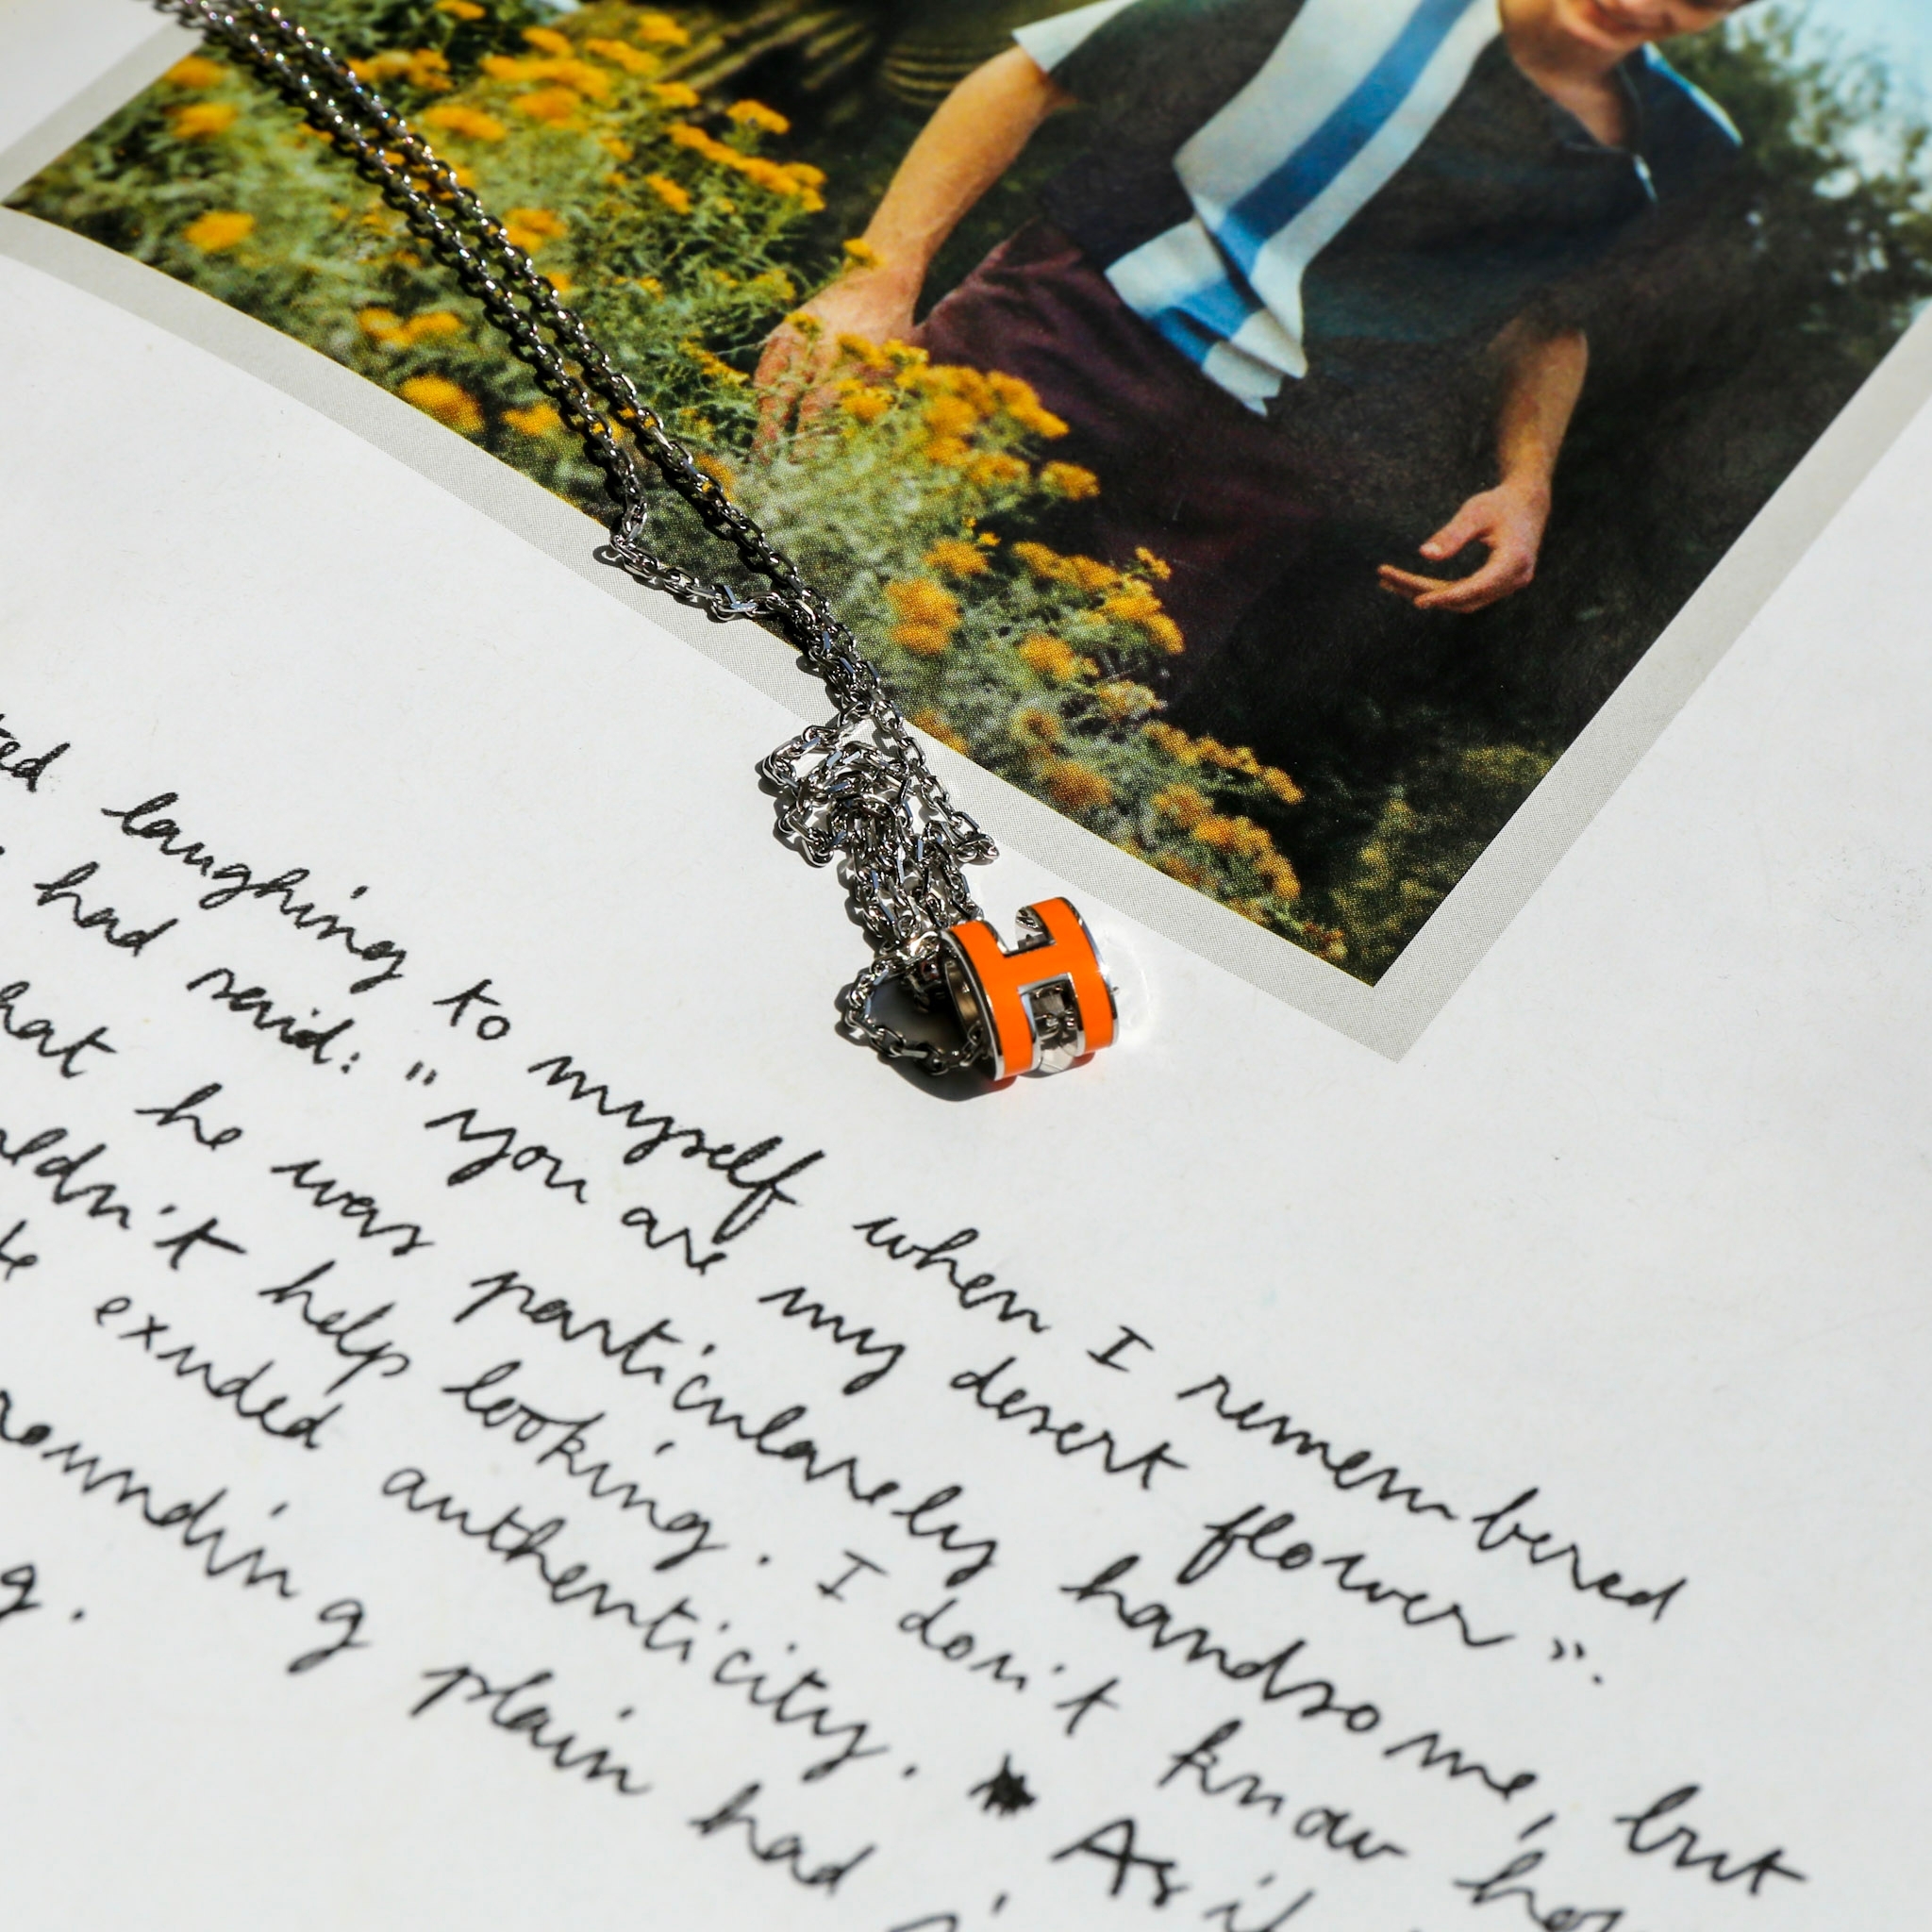 H
ted laughing to myself when I remembered
had said: "you are my desert flower".
hat he was particularely handsome, but
uldn't help looking. I don't know how
exuded authenticity. As if
rounding plain had
g.